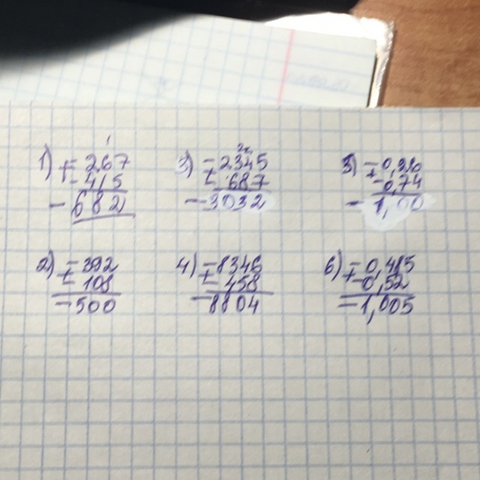 1) + -267
-415
-682
3) + -2345
-687
-3032
5) + -0,3
-0,74
-1,00
2) + -392
-108
-500
4) + -8346
-458
-8804
6) + -0,485
-0,52
-1,005